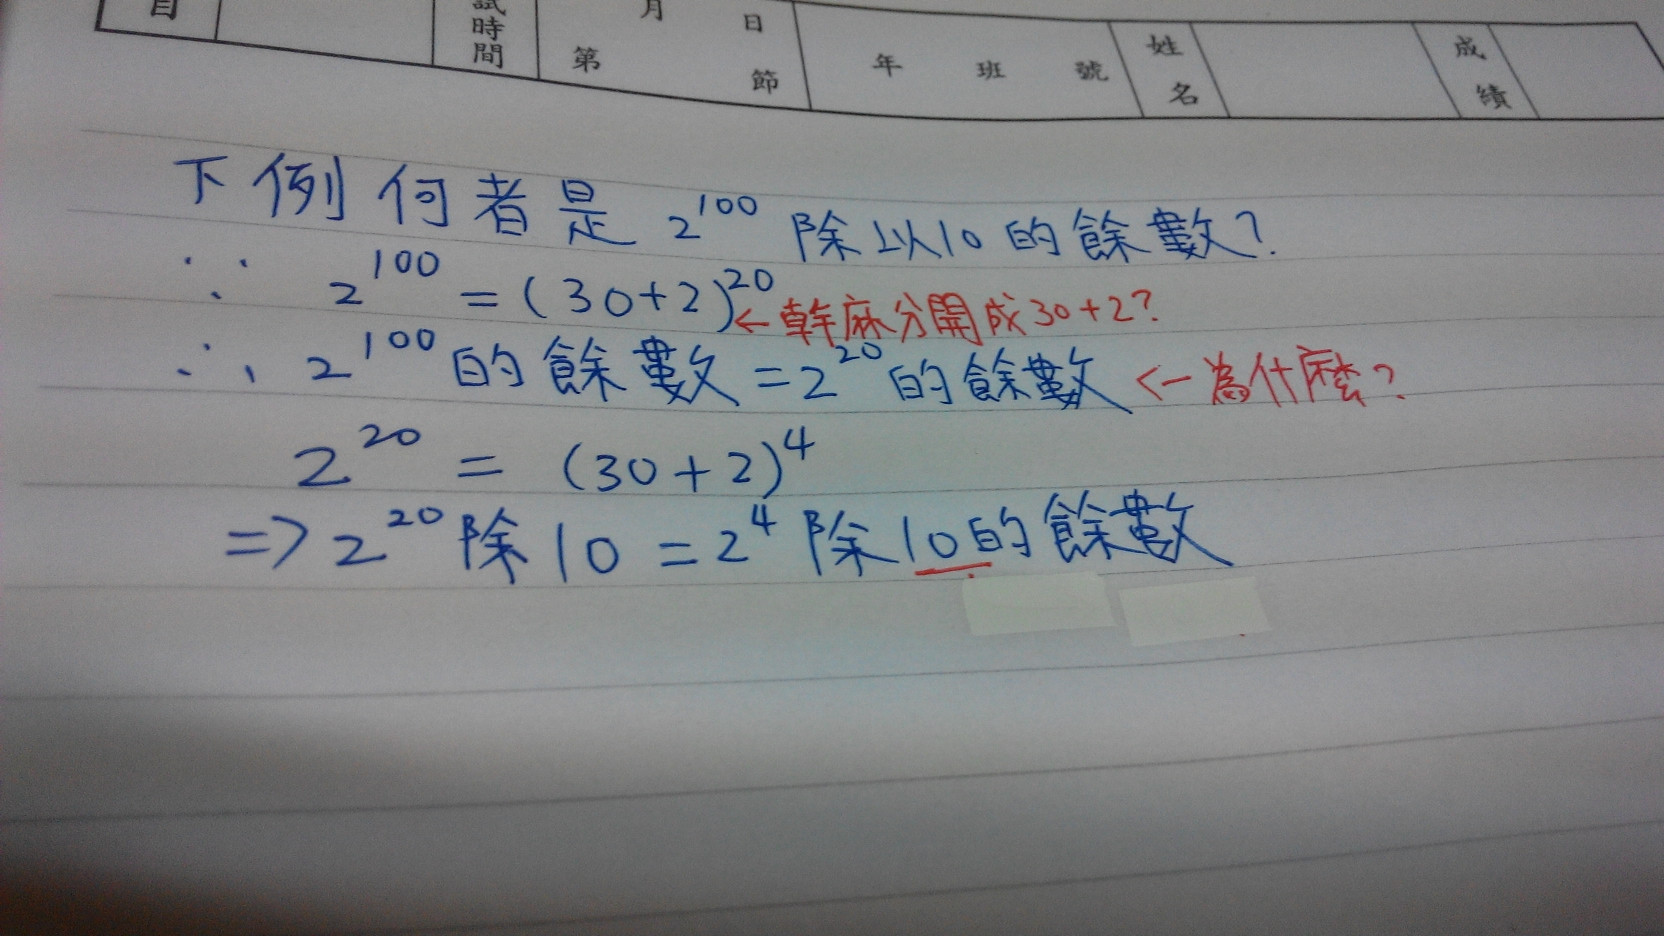 目 試時間 月 日 第 節 年 班 號 姓名 成績
下例何者是 2^100 除以10的餘數?
∵ 2^100 = (30+2)^20 ← 幹麻分開成30+2?
∴ 2^100 的餘數 = 2^20 的餘數 ← 為什麼?
2^20 = (30+2)^4
=> 2^20 除10 = 2^4 除10的餘數